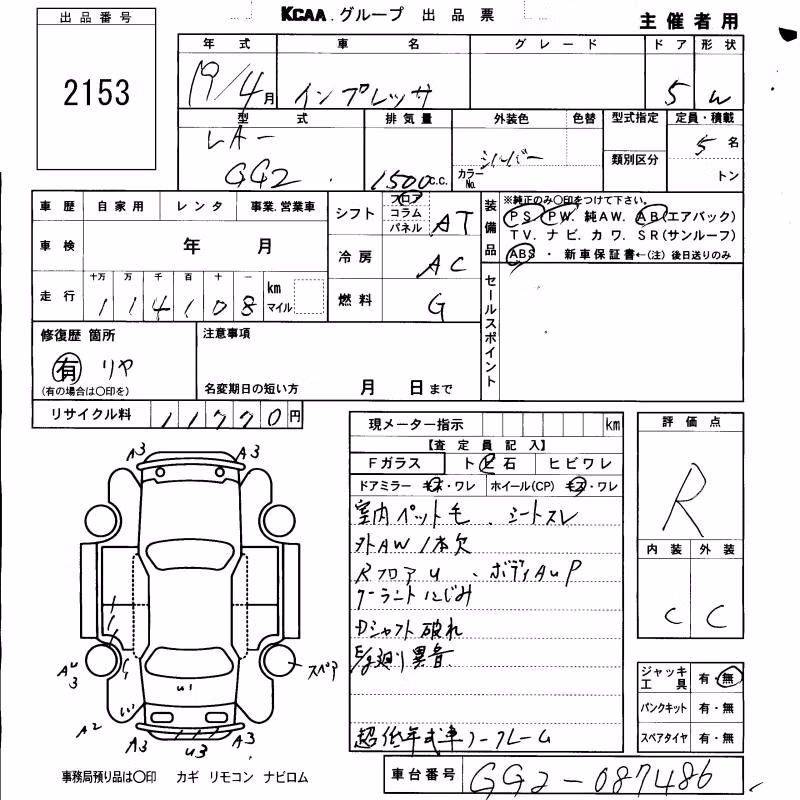 KCAA.グループ 出品票
主催者用
出品番号
2153
年式 車名 グレード ドア 形状
19/4月 インプレッサ 5 W
型式 排気量 外装色 色替 型式指定 定員・積載
LA-
GG2 1500c.c. カラーNo. シルバー 類別区分 5名
トン
車歴 自家用 レンタ 事業.営業車
車検 年 月
走行 十万 万 千 百 十 一 km マイル
1 1 4 1 0 8
シフト フロア コラム パネル AT
冷房 AC
燃料 G
装備品
※純正のみ○印をつけて下さい。
PS PW. 純AW. AB(エアバック)
TV. ナビ. カワ. SR(サンルーフ)
ABS ・ 新車保証書←(注) 後日送りのみ
セールスポイント
修復歴 箇所
有 リヤ
(有の場合は○印を)
注意事項
名変期日の短い方 月 日まで
リサイクル料 11770円
現メーター指示 km
【査定員記入】
Fガラス ト ビ 石 ヒビワレ
ドアミラー キズ・ワレ ホイール(CP) キズ・ワレ
室内ペット毛 、シートスレ
外AW1本欠
RフロアU 、ボディAUP
クーラントにじみ
Dシャフト破れ
E/g廻り異音
超低年式車ノークレーム
評価点
R
内装 外装
C C
ジャッキ工具 有・無
パンクキット 有・無
スペアタイヤ 有・無
A3 A3
AU3
U1
スペア
A2
A3 U3 A3
事務局預り品は○印 カギ リモコン ナビロム
車台番号 GG2-087486